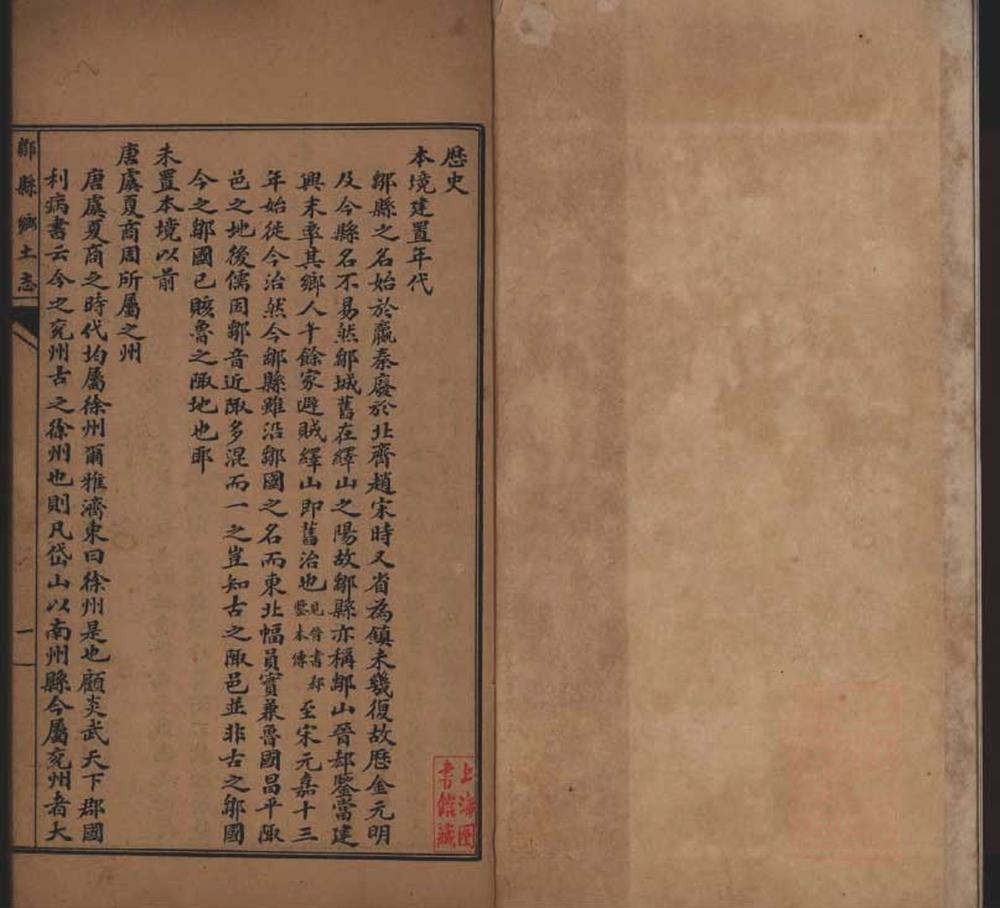 歷史
本境建置年代
鄒縣之名始於嬴秦廢於北齊趙宋時又省為鎮未幾復故歷金元明
及今縣名不易然鄒城舊在繹山之陽故鄒縣亦稱鄒山晉郗鑒當建
興末率其鄉人千餘家避賊繹山即舊治也見晉書郗鑒本傳至宋元嘉十三
年始徙今治然今鄒縣雖沿鄒國之名而東北幅員實兼魯國昌平陬
邑之地後儒因鄒音近陬多混而一之豈知古之陬邑並非古之鄒國
今之鄒國已賅魯之陬地也耶
未置本境以前
唐虞夏商周所屬之州
唐虞夏商之時代均屬徐州爾雅濟東曰徐州是也顧炎武天下郡國
利病書云今之兗州古之徐州也則凡岱山以南州縣今屬兗州者大
鄒縣鄉土志
一
上海圖
書館藏